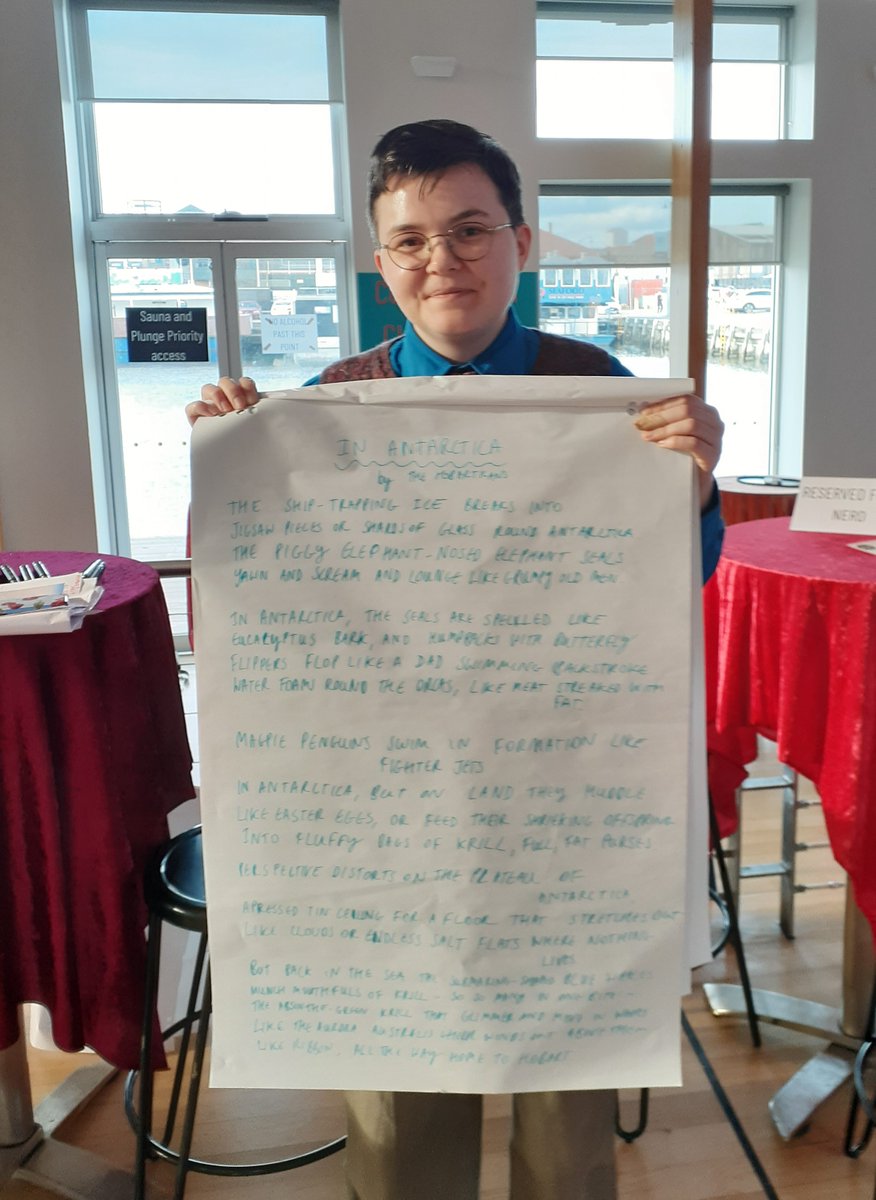 Sauna and
Plunge Priority
access
NO ALCOHOL
PAST THIS
POINT
SEAFOOD
RESERVED F
NERD
IN ANTARCTICA
by THE HOBARTIANS
THE SHIP-TRAPPING ICE BREAKS INTO
JIGSAW PIECES OR SHARDS OF GLASS ROUND ANTARCTICA
THE PIGGY ELEPHANT-NOSED ELEPHANT SEALS
YAWN AND SCREAM AND LOUNGE LIKE GRUMPY OLD MEN.
IN ANTARCTICA, THE SEALS ARE SPECKLED LIKE
EUCALYPTUS BARK, AND HUMPBACKS WITH BUTTERFLY
FLIPPERS FLOP LIKE A DAD SWIMMING BACKSTROKE
WATER FOAM ROUND THE ORCAS, LIKE MEAT STREAKED WITH
FAT.
MAGPIE PENGUINS SWIM IN FORMATION LIKE
FIGHTER JETS
IN ANTARCTICA, BUT ON LAND THEY HUDDLE
LIKE EASTER EGGS, OR FEED THEIR SHRIEKING OFFSPRING
INTO FLUFFY BAGS OF KRILL, FULL, FAT PURSES
PERSPECTIVE DISTORTS ON THE PLATEAU OF
ANTARCTICA,
A PRESSED TIN CEILING FOR A FLOOR THAT STRETCHES OUT
LIKE CLOUDS OR ENDLESS SALT FLATS WHERE NOTHING
LIVES
BUT BACK IN THE SEA THE SUBMARINE-SHAPED BLUE WHALES
MUNCH MOUTHFULS OF KRILL - SO SO MANY IN ONE BITE! -
THE ABSINTHE-GREEN KRILL THAT GLIMMER AND MOVE IN WAVES
LIKE THE AURORA AUSTRALIS WINDS OUT ABOVE THEM
LIKE RIBBON, ALL THE WAY HOME TO HOBART